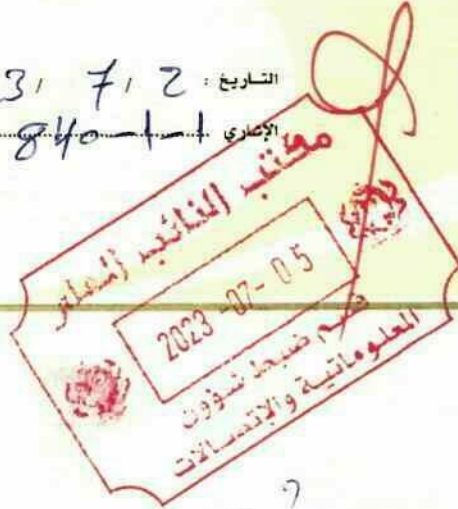 التاريخ : 2 / 7 / 3
الإشاري 1-1-840
مكتب النائب العام
2023 -07- 05
قسم ضبط شؤون
المعلوماتية والإتصالات